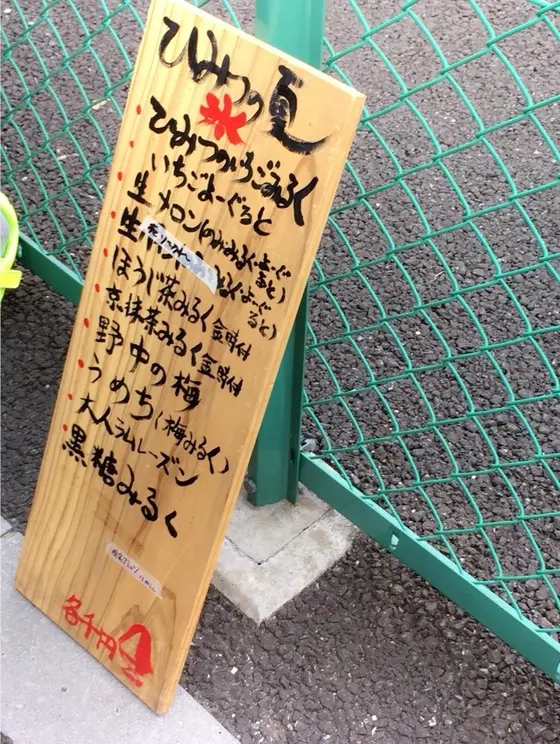 ひみつの夏
氷
ひみつのいちごみるく
いちごよーぐると
生メロン(のみ・みるく・よーぐると)
生
ほうじ茶みるく 金時付
京抹茶みるく 金時付
野中の梅
うめち(梅みるく)
大人ラムレーズン
黒糖みるく
各千円